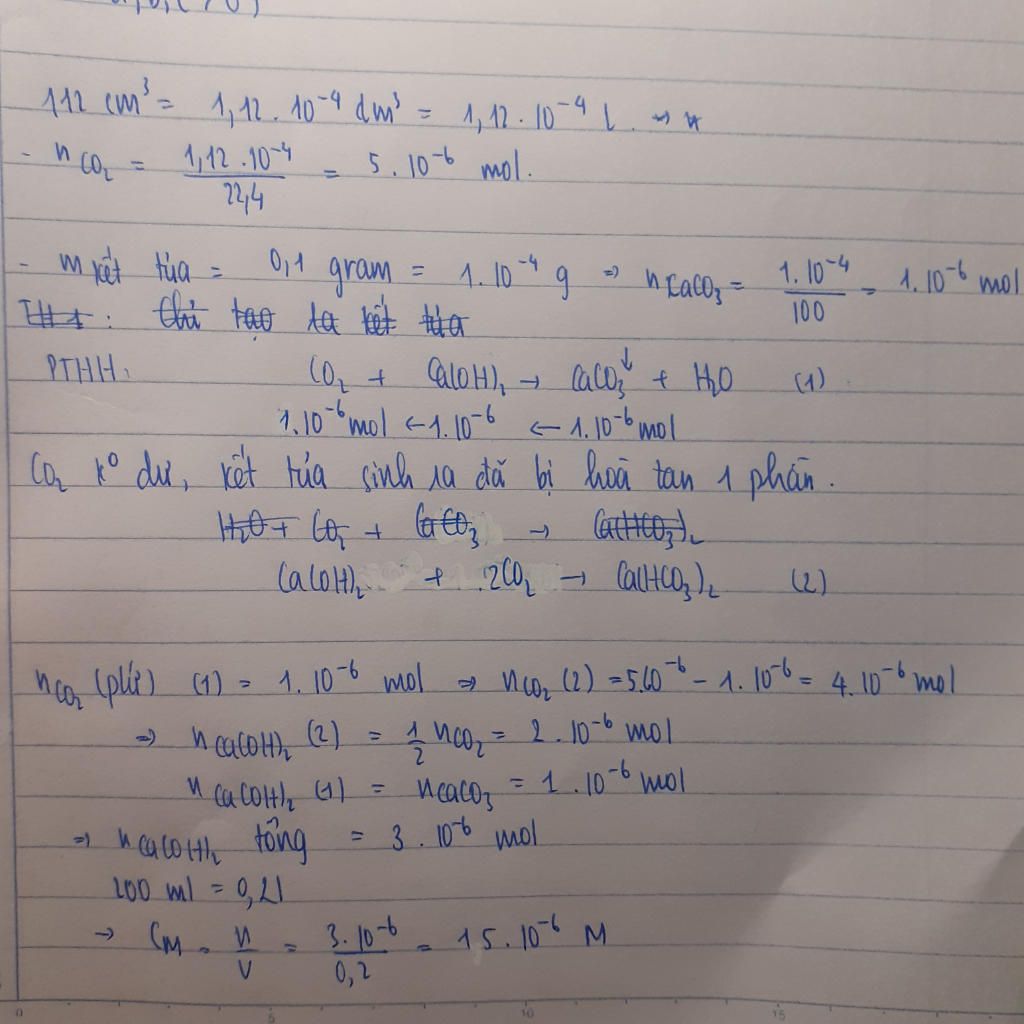 112 cm³ = 1,12 . 10⁻⁴ dm³ = 1,12 . 10⁻⁴ l ⇒ n
- n CO₂ = 1,12 . 10⁻⁴ / 22,4 = 5 . 10⁻⁶ mol.
- m kết tủa = 0,1 gram = 1 . 10⁻⁴ g ⇒ n CaCO₃ = 1.10⁻⁴ / 100 = 1.10⁻⁶ mol
TH1 : Chỉ tạo ra kết tủa
PTHH: CO₂ + Ca(OH)₂ → CaCO₃↓ + H₂O (1)
1.10⁻⁶ mol ← 1.10⁻⁶ ← 1.10⁻⁶ mol
CO₂ k⁰ dư, kết tủa sinh ra đã bị hoà tan 1 phần.
H₂O + CO₂ + CaCO₃ → Ca(HCO₃)₂
Ca(OH)₂ + 2CO₂ → Ca(HCO₃)₂ (2)
nCO₂ (pứ) (1) = 1.10⁻⁶ mol ⇒ nCO₂ (2) = 5.10⁻⁶ - 1.10⁻⁶ = 4.10⁻⁶ mol
⇒ n Ca(OH)₂ (2) = 1/2 nCO₂ = 2 . 10⁻⁶ mol
n Ca(OH)₂ (1) = nCaCO₃ = 1 . 10⁻⁶ mol
⇒ n Ca(OH)₂ tổng = 3 . 10⁻⁶ mol
200 ml = 0,2l
→ CM = n / V = 3.10⁻⁶ / 0,2 = 15 . 10⁻⁶ M
0 5 10 15